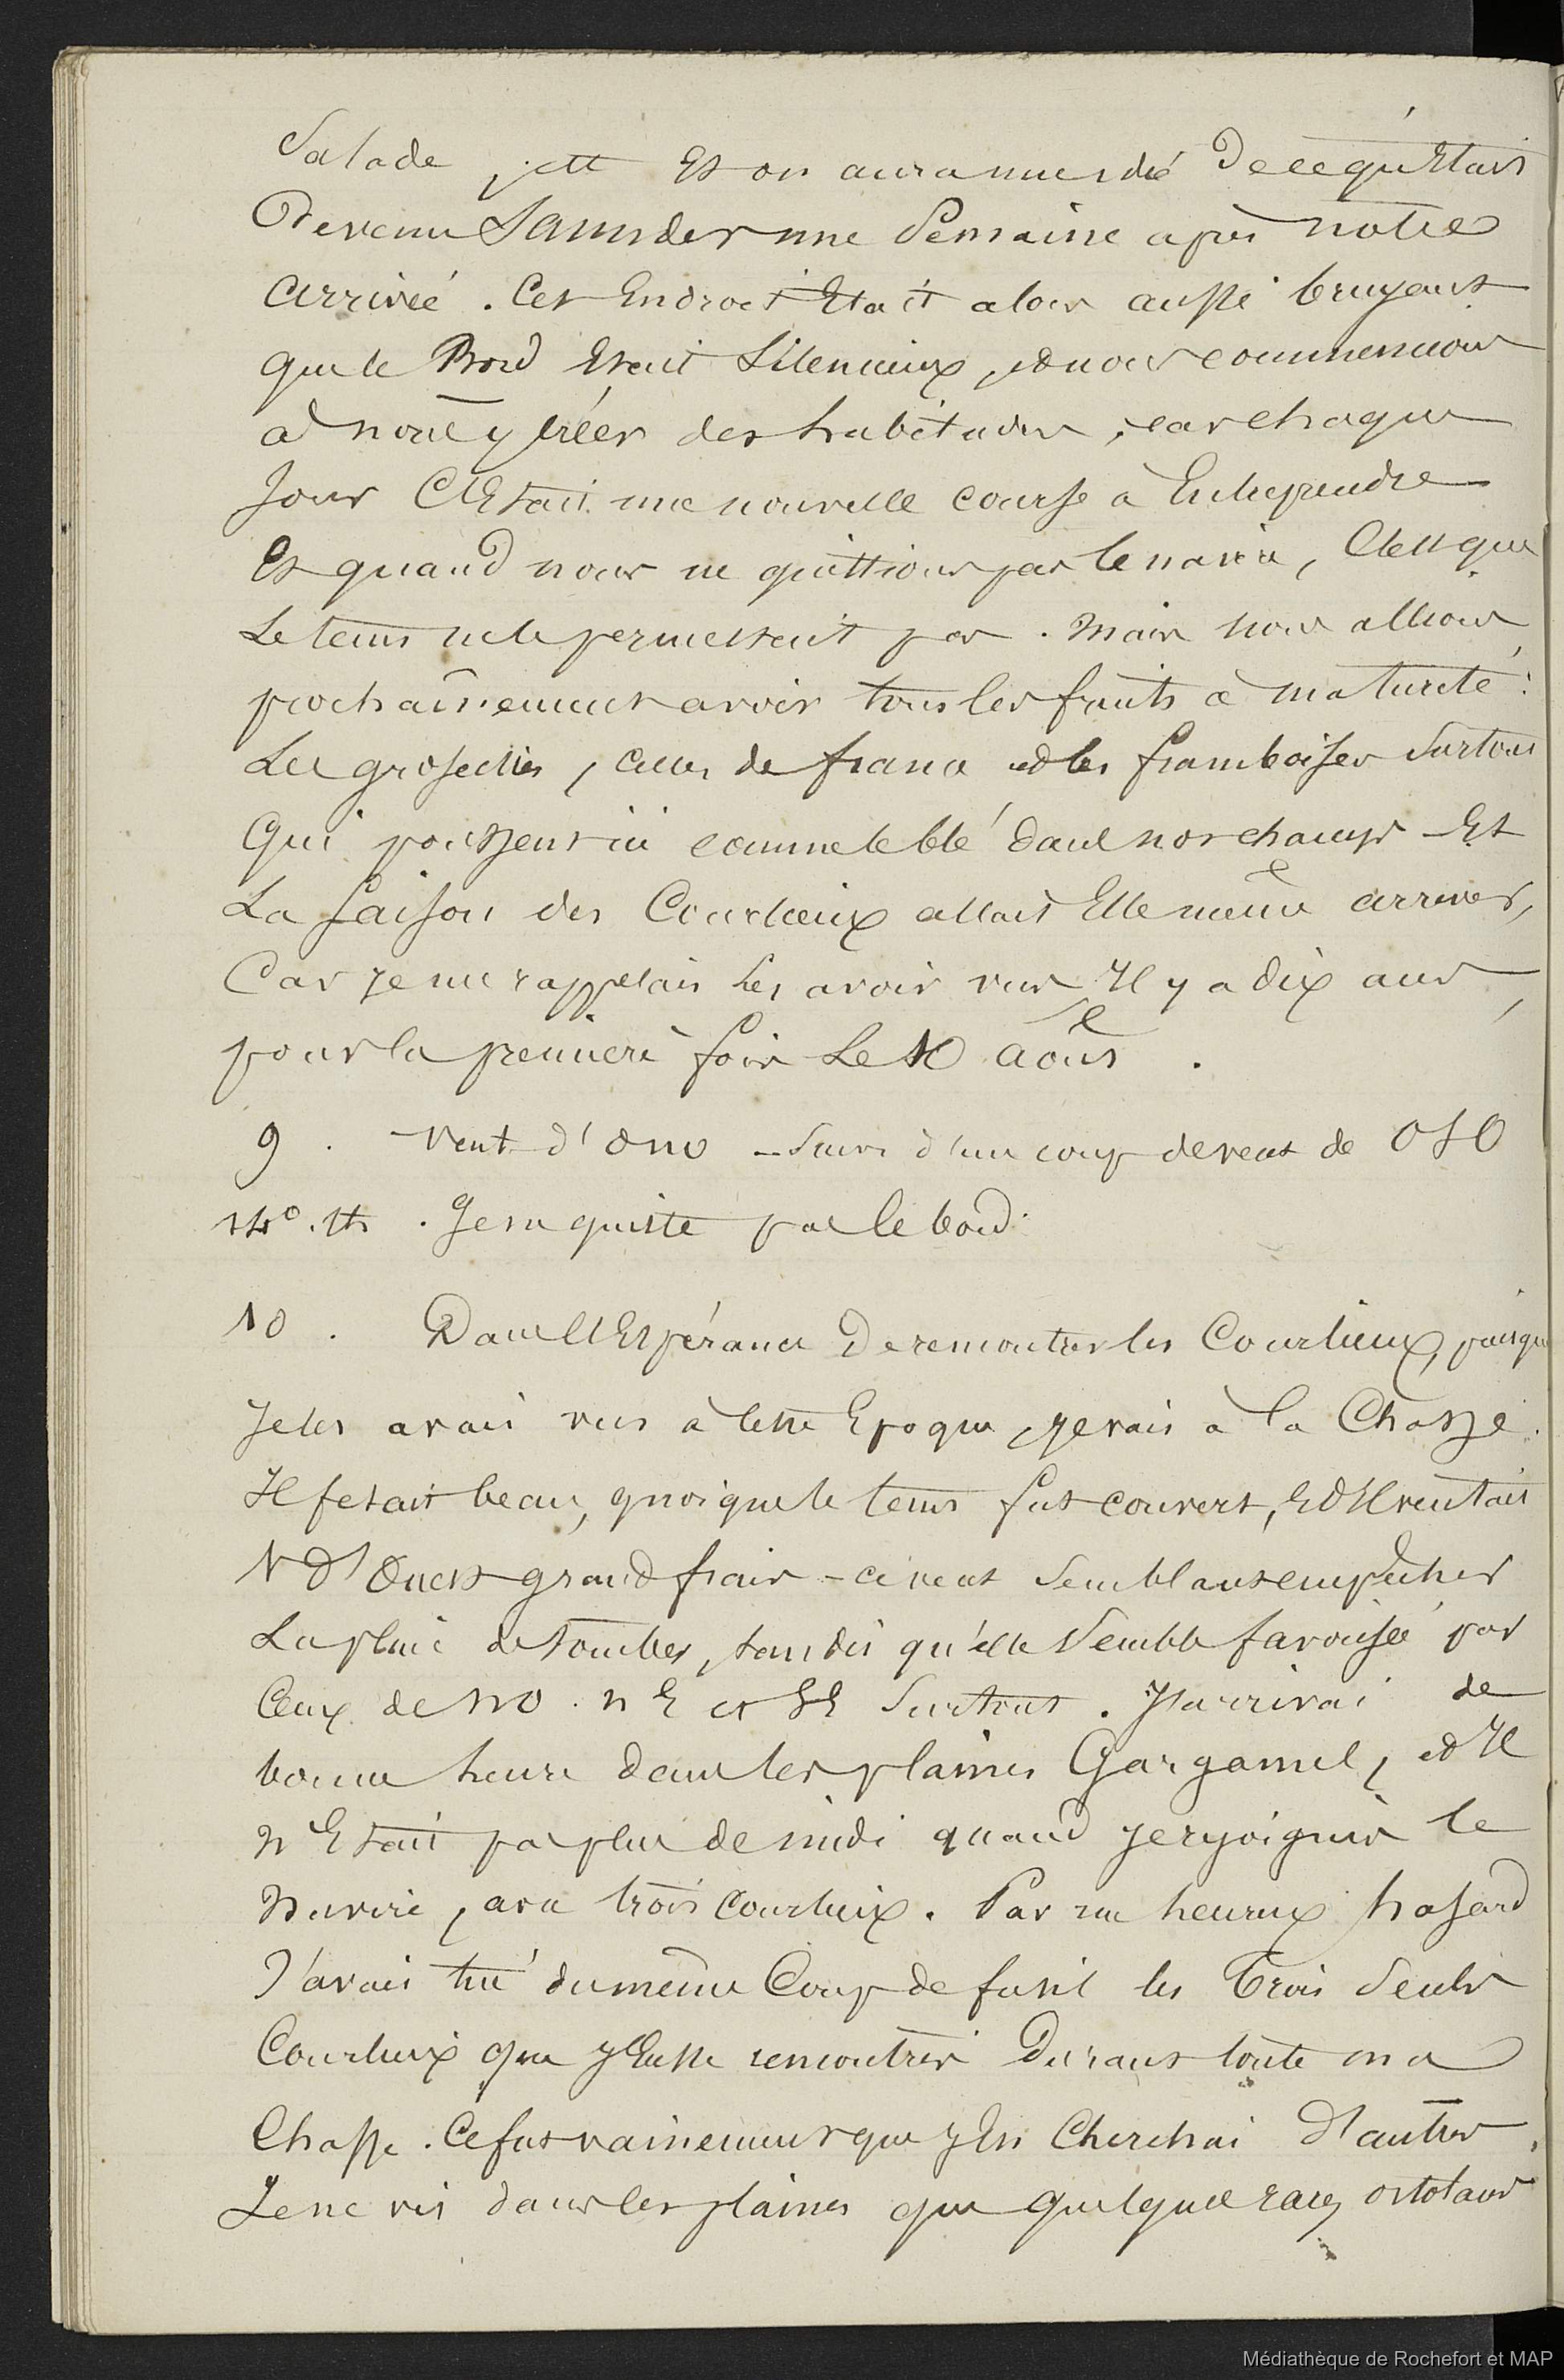 Salade, jett Et on aura une idée De ce qu'Etait
Devenu Saunders une Semaine après notre
arrivée. Cet Endroit Etait alors aussi bruyant
que le Bord Etait Silencieux, et nous commencions
à nous y créer des habitudes, car chaque
Jour C'Etait une nouvelle course à Entreprendre
Et quand nous ne quittions pas le navire, C'est que
Le tems ne le permettait pas. Mais nous allions,
prochainement avoir tous les fruits à maturité:
Les groseilles, celles de france et les framboises Surtout
Qui poussent ici comme le blé dans nos champs Et
La Saison des Courlieux allait Elle même arriver,
Car Je me rappelais Les avoir vus Il y a dix ans,
pour la première fois Le 10 août.
9. Vent d'ONO Suivi d'un coup de vent de OSO
14°. Je ne quitte pas le bord.
10. Dans l'Espérance De rencontrer les Courlieux, puisque
Je les avais vus à cette Epoque, je vais à la Chasse.
Il fesait beau, quoique le tems fut couvert, Et Il ventait
V D'Ouest grand frais - ce vent Semblant empêcher
La pluie de tomber, tandis qu'elle Semble favorisée par
Ceux de NO. NE et SE Surtout. J'arrivai de
bonne heure dans les plaines Gargamel, et Il
n'Etait pas plus de midi quand je rejoignis le
Navire, avec trois Courlieux. Par un heureux hasard
J'avais tué du même Coup de fusil les Trois Seuls
Courlieux que j'Eusse rencontrés Durant toute ma
Chasse. Ce fut vainement que j'En Cherchai D'autres.
Je ne vis dans les plaines que quelques rares ortolans
Médiathèque de Rochefort et MAP